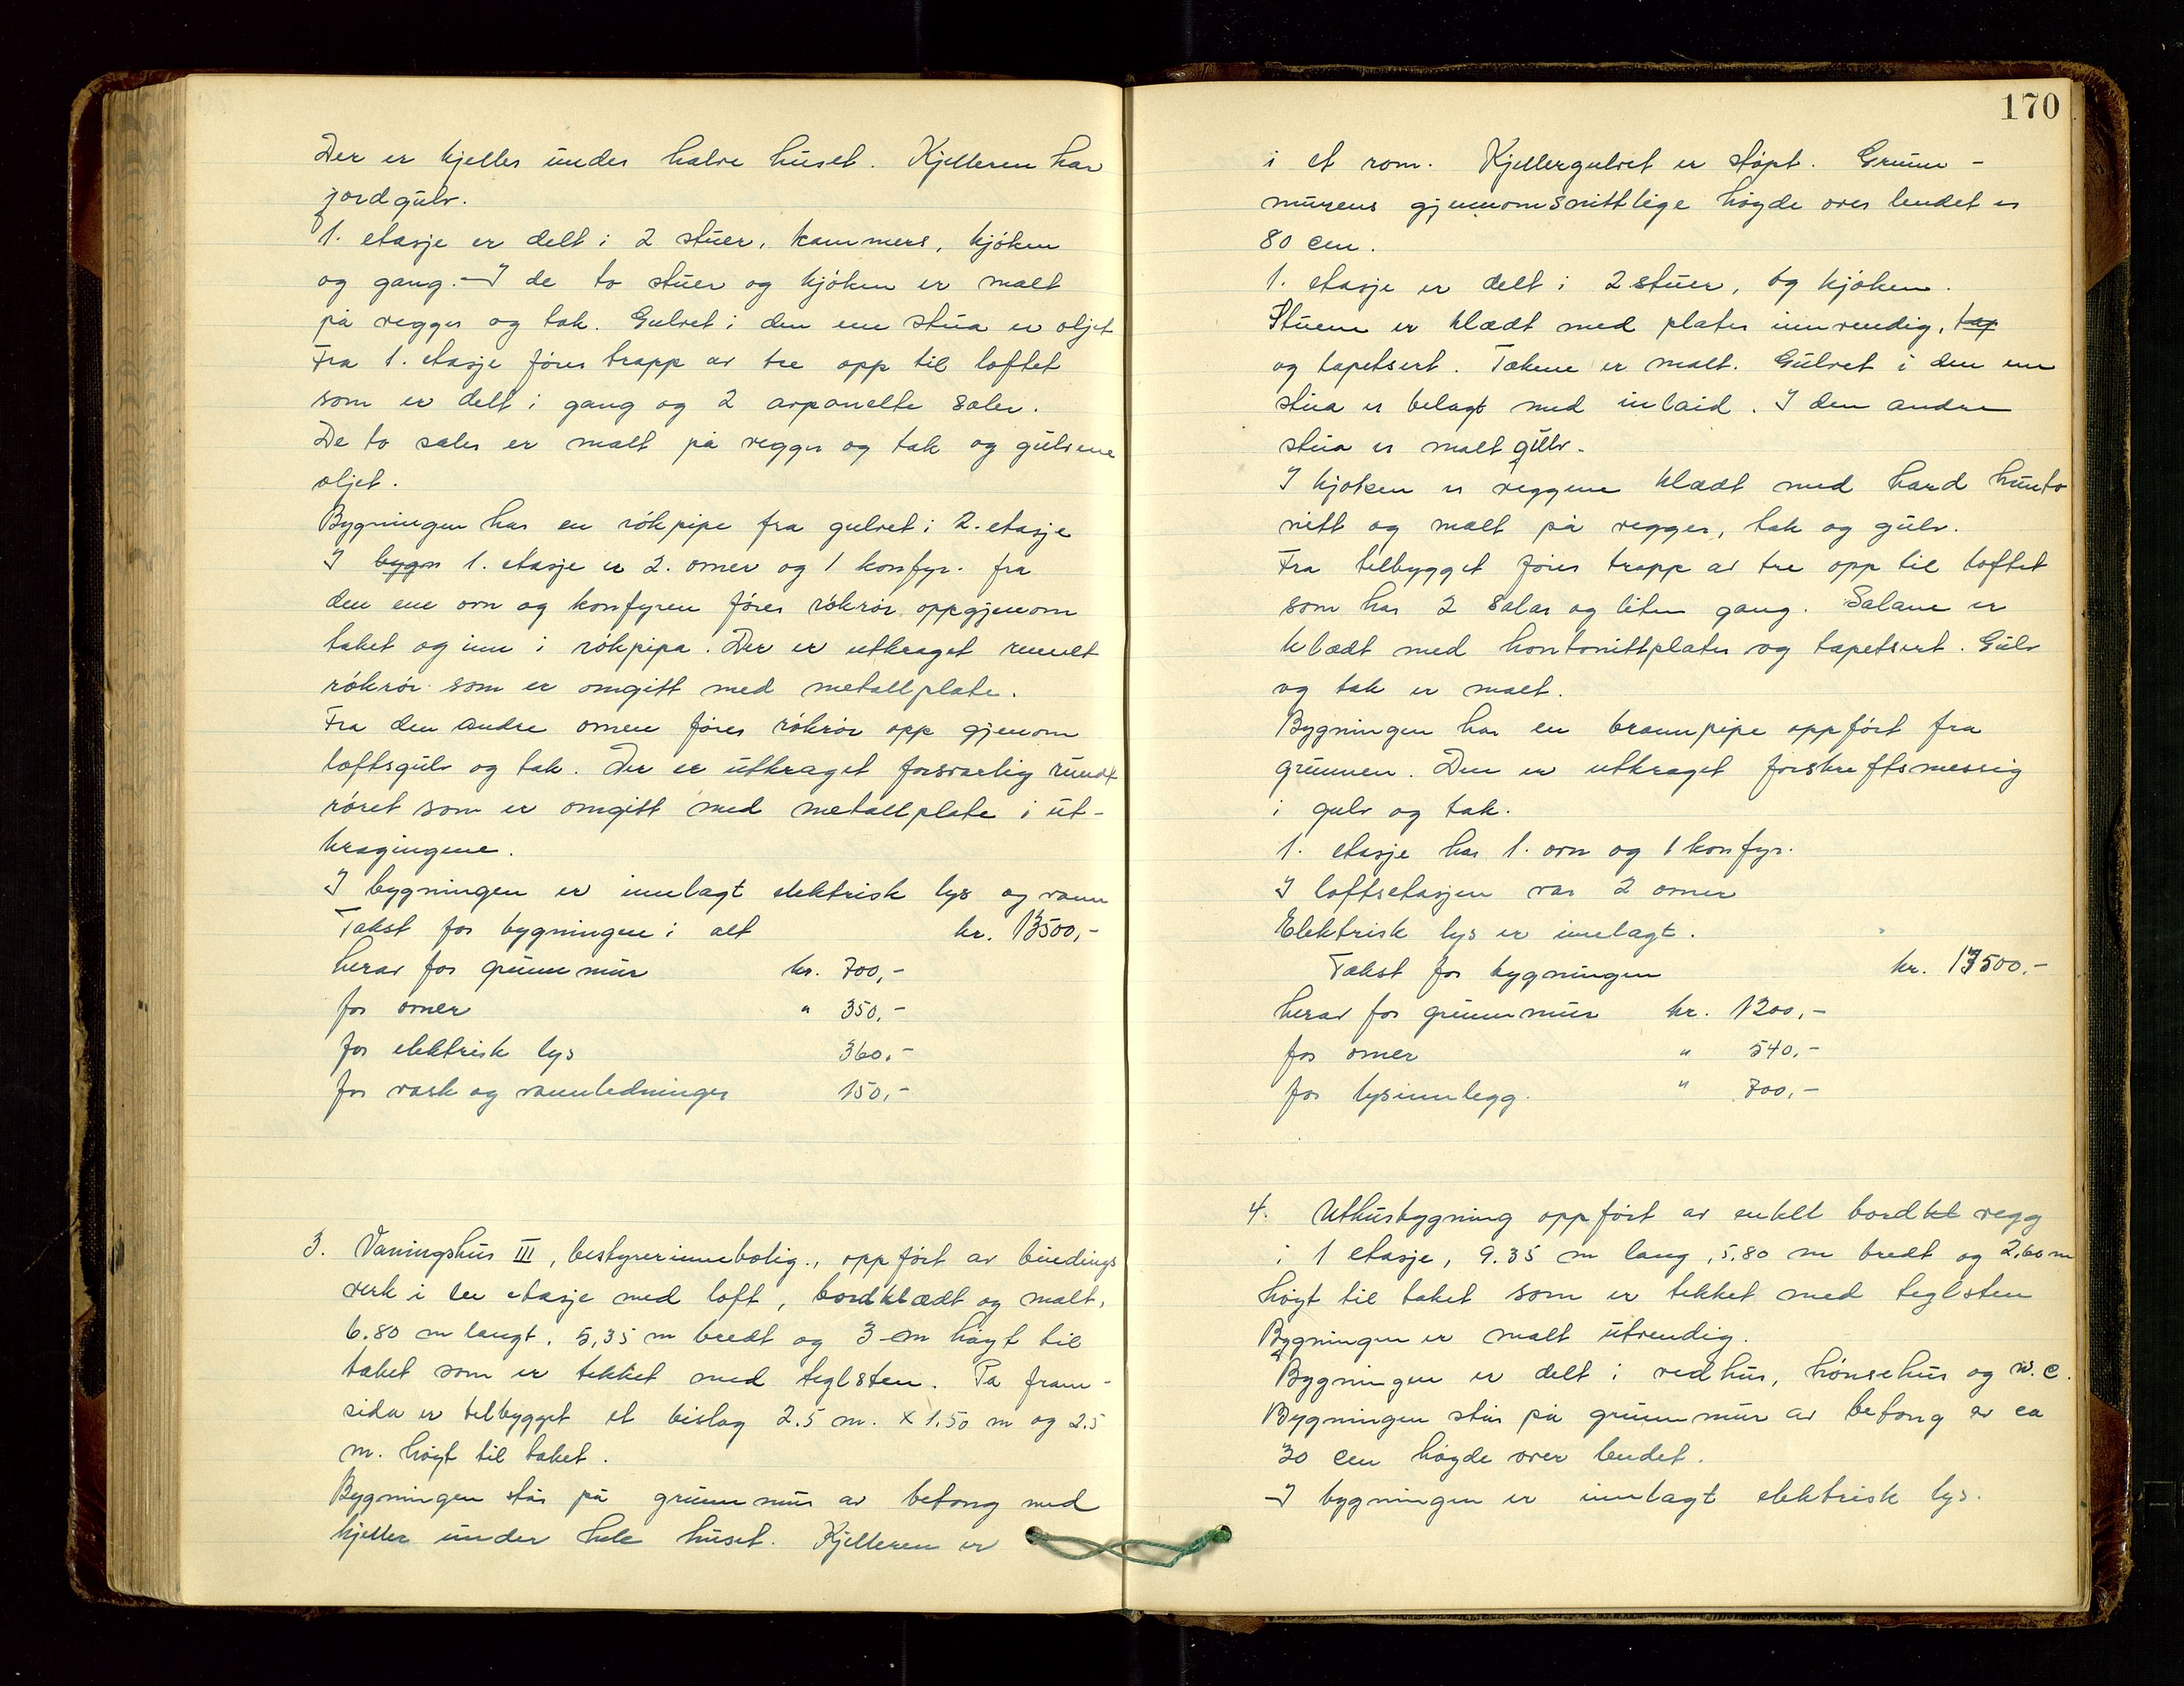 Der er kjeller under halve huset. Kjelleren har
jordgulv.
1. etasje er delt i 2 stuer, kammers, kjøken
og gang. - I de to stuer og kjøken er malt
på vegger og tak. Gulvet i den ene stua er oljet
Fra 1. etasje føres trapp av tre opp til loftet
som er delt i gang og 2 avpanelte saler.
De to saler er malt på vegger og tak og gulvene
oljet.
Bygningen har en rökpipe fra gulvet i 2. etasje
I bygn 1. etasje er 2. omner og 1 konfyr. fra
den ene ovn og konfyren føres rökrör opp gjenom
taket og inn i rökpipa. Der er utkraget rundt
rökrör som er omgitt med metallplate.
Fra den andre omnen føres rökrör opp gjenom
loftsgulv og tak. Der er utkraget forsvarlig rundt
röret som er omgitt med metallplate i ut-
kragingene.
I bygningen er innlagt elektrisk lys og vann
Takst for bygningen i alt kr. 13500,-
herav for grunnmur kr. 700,-
for omner " 350,-
for elektrisk lys 360,-
for vask og vannledninger 150,-
3. Våningshus III, bestyrerinnebolig, oppført av bindings
verk i en etasje med loft, bordklædt og malt,
6.80 m langt, 5,35 m bredt og 3 m høyt til
taket som er tekket med teglsten. På fram-
sida er tilbygget et bislag 2.5 m. x 1.50 m og 2.5
m. høyt til taket.
Bygningen står på grunnmur av betong med
kjeller under hele huset. Kjelleren er
170
i et rom. Kjellergulvet er støpt. Grunn-
murens gjennomsnittlige høyde over lendet er
80 cm.
1. etasje er delt i 2 stuer, og kjøken.
Stuene er klædt med plater innvendig, tap
og tapetsert. Takene er malt. Gulvet i den ene
stua er belagt med inlaid. I den andre
stua er malt gulv.
I kjøken er veggene klædt med hard hunto
nitt og malt på vegger, tak og gulv.
Fra tilbygget føres trapp av tre opp til loftet
som har 2 salar og liten gang. Salane er
klædt med hontonittplater og tapetsert. Gulv
og tak er malt.
Bygningen har en brannpipe oppført fra
grunnen. Den er utkraget forskreftsmessig
i gulv og tak.
1. etasje har 1. ovn og 1 konfyr.
I loftsetasjen var 2 omner
Elektrisk lys er innlagt.
Takst for bygningen kr. 17500.-
herav for grunnmur kr. 1200,-
for omner " 540,-
for lysinnlegg. " 700,-
4. Uthusbygning oppført av enkelt bordkl vegg
i 1 etasje, 9.35 m lang, 5.80 m bredt og 2,60 m
høyt til taket som er tekket med teglsten
Bygningen er malt utvendig.
Bygningen er delt i vedhus, hønsehus og w.c.
Bygningen står på grunnmur av betong av ca
30 cm høyde over lendet.
I bygningen er innlagt elektrisk lys.